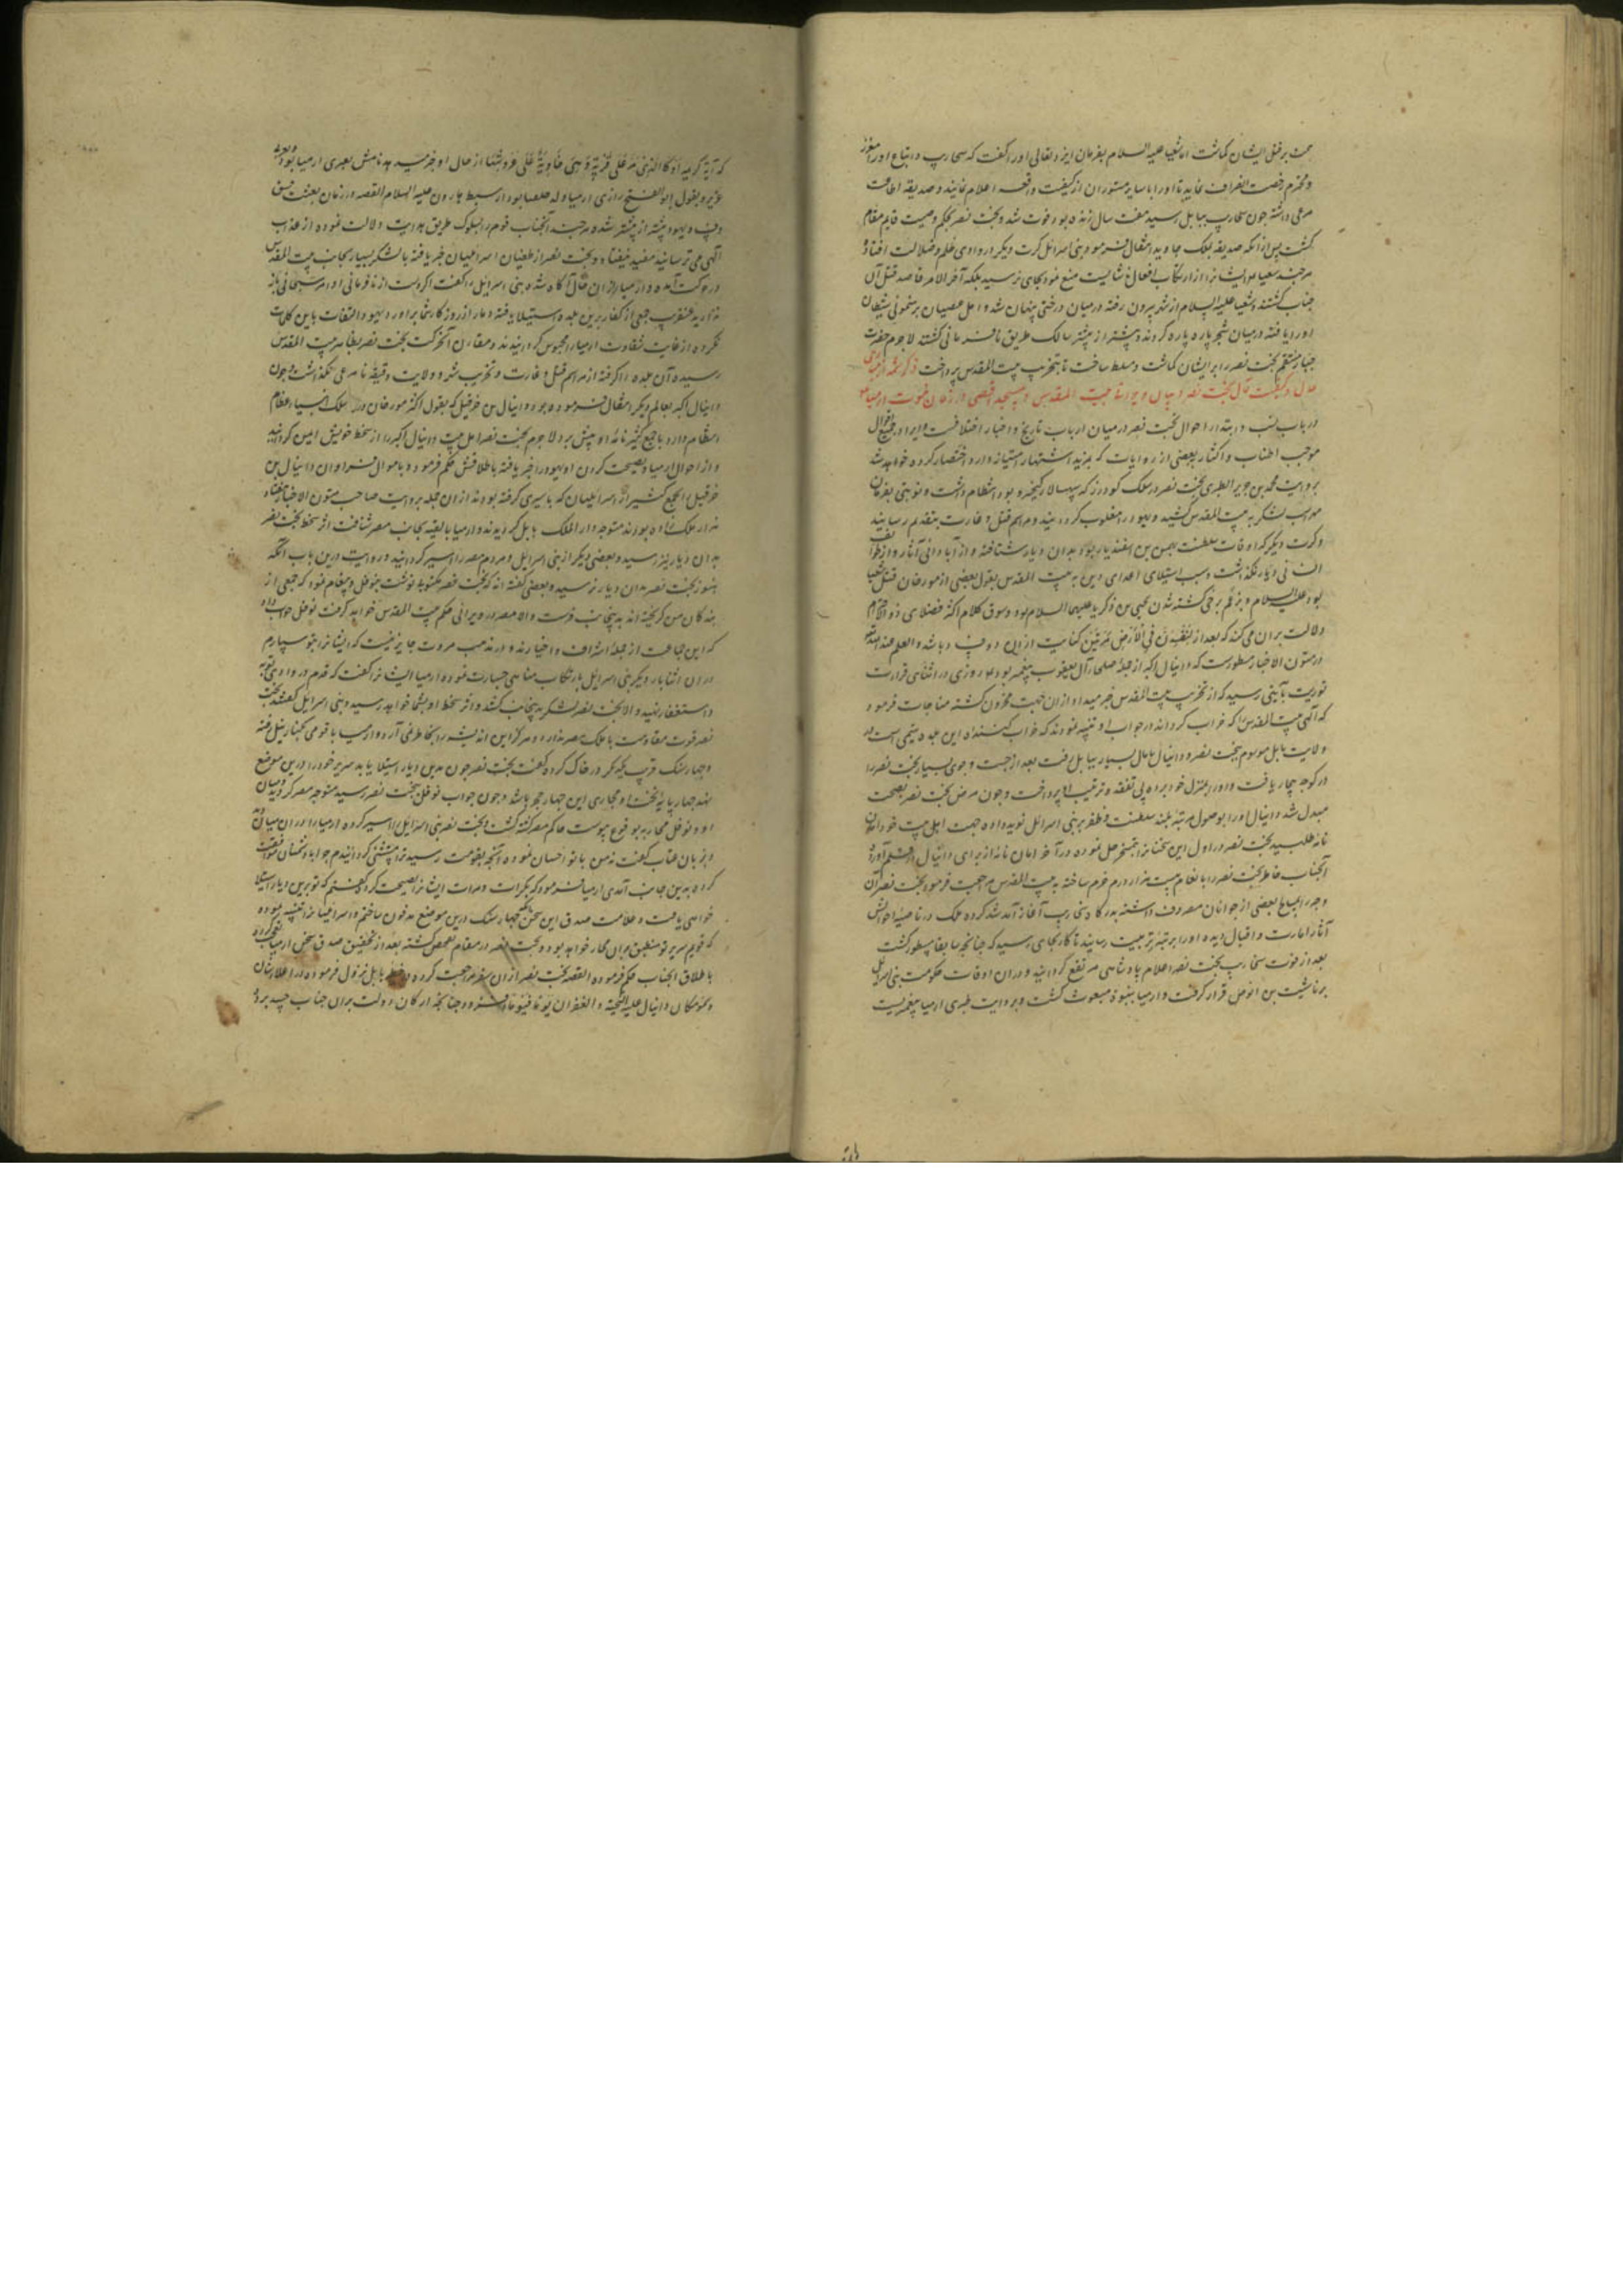 همت بر قتل ایشان گماشت اما شعیا علیه السلام بفرمان ایزد تعالی او را گفت که سنحاریب و اتباع او را معزز
و محترم رخصت انصراف نماید تا او را با سایر مستوران از کیفیت واقعه اعلام نمایند و صدیقه اطاعت
مرعی داشته چون سنحاریب ببابل رسید هفت سال زنده بود و فوت شد و بخت نصر بحکم وصیت قایم مقام
گشت پس از آنکه صدیقه بملک جاوید انتقال فرمود بنی اسرائیل کرت دیگر در وادی ظلم و ضلالت افتاده
هرچند شعیا ایشانرا از ارتکاب افعال ناشایست منع نمود بجای نرسید بلکه آخر الامر قاصد قتل آن
جناب گشتند و شعیا علیه السلام از شهر بیرون رفته در میان درختی پنهان شد و اهل عصیان برهنمونی شیطان
او را یافته در میان شجر پاره پاره کردند و بیشتر از پیشتر سالک طریق نافرمانی گشتند لاجرم حضرت
جبار منتقم بخت نصر را بر ایشان گماشت و مسلط ساخت تا بتخریب بیت المقدس پرداخت ذکر شمه از مبادی
حال و کیفیت مآل بخت نصر و بیان ویرانی بیت المقدس و مسجد اقصی در زمان نبوت ارمیا
در باب نسب و ابتداء احوال بخت نصر در میان ارباب تاریخ و اخبار اختلافست و ایراد جمیع اقوال
موجب اطناب و اکثار بعضی از روایات که بمزید اشتهار امتیاز دارد اختصار کرده خواهد شد
بروایت محمد بن جریر الطبری بخت نصر در سلک گودرز که سپهسالار کیخسرو بود انتظام داشت و نوبتی بفرمان
لهراسب لشکر به بیت المقدس کشید و یهود را مغلوب گردانید و مراسم قتل و غارت بتقدیم رسانید
و کرت دیگر که اوقات سلطنت بهمن بن اسفندیار بود بدان دیار شتافته و از آبادانی آثار و از طوایف
انسانی دیار نگذاشت و سبب استیلای اعدای دین به بیت المقدس بقول بعضی از مورخان قتل شعیا
بود علیه السلام و بزعم برخی کشته شدن یحیی بن زکریا علیهما السلام بود و سوق کلام اکثر فضلای ذو الاحترام
دلالت بران می کند که بعد از لَتُفْسِدُنَّ فِی الْأَرْضِ مَرَّتَیْنِ کنایت از این دو فساد باشد و العلم عند الله
در متون الاخبار مسطورست که دانیال اکبر از جمله صلحای آل یعقوب پیغمبر بود و روزی در اثنای قرائت
توریت بآیتی رسید که از تخریب بیت المقدس خبر میداد از ان جهت محزون گشته مناجات فرمود
که الهی بیت المقدس را که خراب گرداند در جواب او تنبیه نمودند که خراب کننده این بلده یتیمی است در
ولایت بابل موسوم ببخت نصر و دانیال با مال بسیار ببابل رفت بعد از جست و جوی بسیار بخت نصر را
در کوچه بیمار یافت و او را بمنزل خود برده پی تفقد و ترتیب او پرداخت و چون مرض بخت نصر بصحت
مبدل شد دانیال او را بوصول مرتبه بلند سلطنت و ظفر بر بنی اسرائیل نوید داده جهت اهل بیت خود امان
نامه طلبید بخت نصر در اول این سخنانرا بتمسخر حمل نموده در آخر امان نامه از برای دانیال در قلم آورد
آنجناب خاطر بخت نصر را بانعام بیست هزار درم خرم ساخته به بیت المقدس مراجعت فرمود بخت نصر آن
وجه را بمبالغ بعضی از جوانان مصروف داشته بدرگاه سنحاریب آغاز آمد شد کرده ملک در ناصیه احوالش
آثار امارت و اقبال دیده او را بمرتبه تربیت رسانید تا کار بجای رسید که چنانچه سابقا مسطور گشت
بعد از فوت سنحاریب بخت نصر اعلام پادشاهی مرتفع گردانید و در ان اوقات حکومت بنی اسرائیل
بر ناشیت بن انوص قرار گرفت و ارمیا بنبوة مبعوث گشت و بروایت طبری ارمیا پیغمبریست
که آیة کریمه أَوْ کَالَّذِی مَرَّ عَلَى قَرْیَةٍ وَهِیَ خَاوِیَةٌ عَلَى عُرُوشِهَا از حال او خبر میدهد نامش بعبری ارمیا بود و بعربی
عزیر و بقول ابو الفتح رازی ارمیا ولد حلقیا بود از سبط هارون علیه السلام القصه در زمان بعثت فسق
و فساد یهود بیشتر از پیشتر شده هرچند آنجناب قوم را بسلوک طریق هدایت دلالت نموده از عذاب
الهی می ترسانید مفید نیفتاد و بخت نصر از طغیان اسرائیلیان خبر یافته با لشکر بسیار بجانب بیت المقدس
در حرکت آمده و ارمیا از ان حال آگاه شده بنی اسرائیل را گفت اگر دست از نافرمانی اوامر سبحانی باز
ندارید عنقریب جمعی از کفار برین بلده استیلا یافته دمار از روزگار شما برآورد یهود التفات باین کلمات
نکرده از غایت شقاوت ارمیا را محبوس گردانیدند و مقارن آنحرکت بخت نصر بظاهر بیت المقدس
رسیده آن بلده را گرفته از مراسم قتل و غارت و تخریب شهر و ولایت دقیقه نامرعی نگذاشت و چون
دانیال اکبر بعالم دیگر انتقال فرموده بود و دانیال بن خرقیل که بقول اکثر مورخان در سلک انبیاء عظام
انتظام دارد با جمع کثیر نامه او پیش برد لاجرم بخت نصر اهل بیت دانیال اکبر را از سخط خویش ایمن گردانید
و از احوال ارمیا و نصیحت کردن او یهود را خبر یافته باطلاقش حکم فرمود و با اموال فراوان دانیال بن
خرقیل با جمع کثیر از اسرائیلیان که باسیری گرفته بودند از ان جمله بروایت صاحب متون الاخبار هفتاد
هزار ملک زاده بودند متوجه دار الملک بابل گردیدند و ارمیا با بقیه بجانب مصر شتافت اثر سخط بخت نصر
بدان دیار نیز رسید و بعضی دیگر از بنی اسرائیل و مردم مصر را اسیر گردانید و روایت درین باب آنکه
هنوز بخت نصر بدان دیار نرسیده بعضی گفته اند که بخت نصر مکتوبی نوشت بنوفل و پیغام نمود که جمعی از
بندگان من گریخته اند بدینجانب فرست والا مصر در ویرانی حکم بیت المقدس خواهد گرفت نوفل جواب داد
که این جماعت از جمله اشراف و اخیارند و در مذهب مروت جایز نیست که ایشانرا بتو سپارم
در ان اثنا بار دیگر بنی اسرائیل بارتکاب مناهی جسارت نموده ارمیا ایشانرا گفت که قدم در وادی توبه
و استغفار نهید والا بخت نصر لشکر بدینجانب کشد و اثر سخط او بشما خواهد رسید و بنی اسرائیل گفتند بخت
نصر قوت مقاومت با ملک مصر ندارد و هرگز این اندیشه را بخاطر نمی آرد و ارمیا با قومی بکنار نیل رفته
و چهار سنگ قریب یکدیگر در خاک کرده گفت بخت نصر چون بدین دیار استیلا یابد سریر خود را درین موضع
نهد چهار پایه تخت او محاذی این چهار حجر باشد و چون جواب نوفل ببخت نصر رسید متوجه مصر گردید و میان
او و نوفل محاربه بوقوع پیوست حاکم مصر کشته گشت و بخت نصر بنی اسرائیل را اسیر کرده ارمیا را در ان میان دید
و بزبان عتاب گفت نه من با تو احسان نموده از آنچه بقومت رسید ترا مستثنی گردانیدم چرا با دشمنان موافقت
کرده بدین جانب آمدی ارمیا فرمود که بکرات و مرات ایشانرا نصیحت کرده گفتم که تو برین دیار استیلا
خواهی یافت و علامت صدق این سخن آنکه چهار سنگ درین موضع مدفون ساختم و اسرائیلیانرا تنبیه نموده
که قوایم سریر تو منطبق بران احجار خواهد بود و بخت نصر در مقام تفحص گشته بعد از تحقیق صدق سخن ارمیا
باطلاق آنجناب حکم فرموده القصه بخت نصر از ان سفر مراجعت کرده در خطه بابل نزول فرموده در اعلاء شان
و سمو مکان دانیال علیه التحیه و الغفران یوما فیوما افزود چنانچه ارکان دولت بران جناب حسد برده